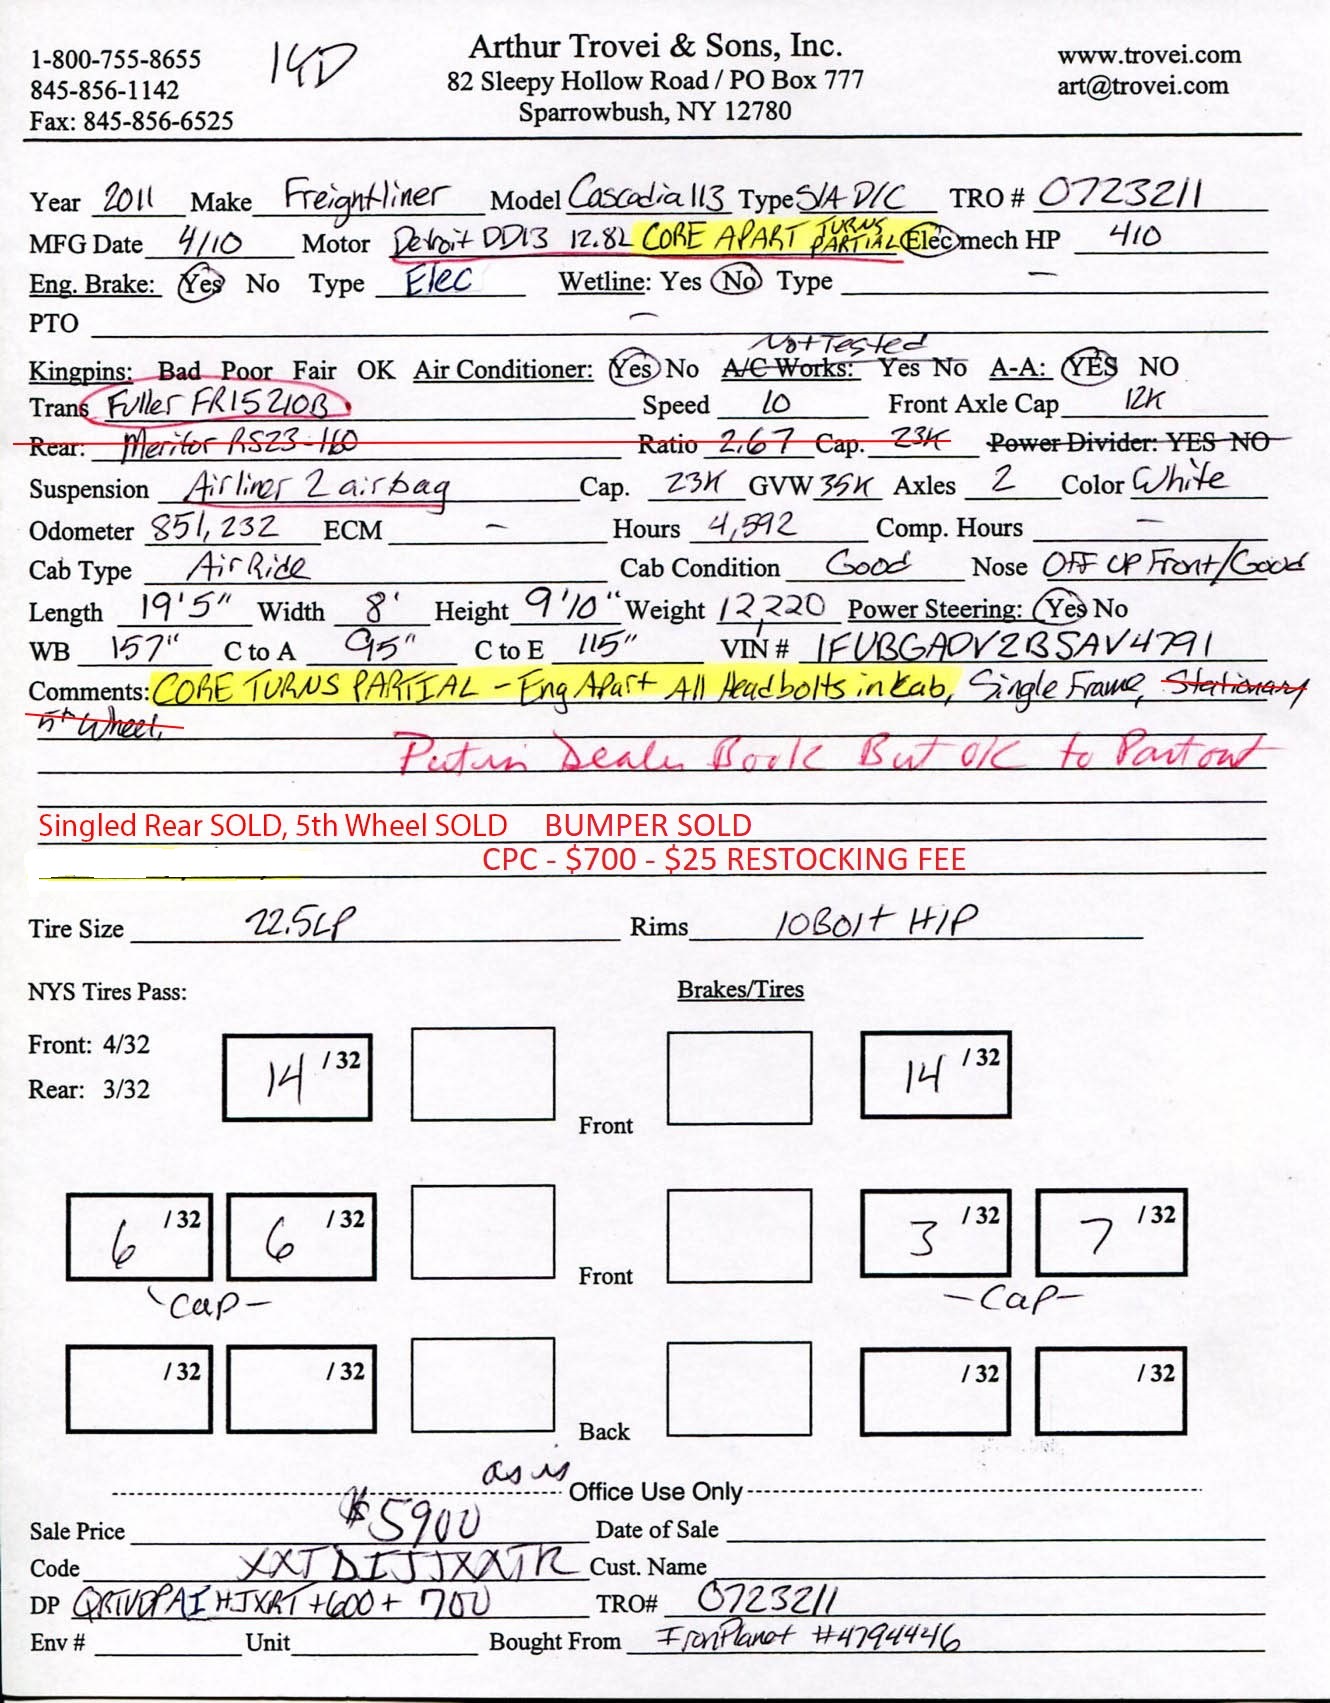 1-800-755-8655
845-856-1142
Fax: 845-856-6525
14D
Arthur Trovei & Sons, Inc.
82 Sleepy Hollow Road / PO Box 777
Sparrowbush, NY 12780
www.trovei.com
art@trovei.com
Year 2011 Make Freightliner Model Cascadia 113 Type S/A D/C TRO # 0723211
MFG Date 4/10 Motor Detroit DD13 12.8L CORE APART TURNS PARTIAL Elec mech HP 410
Eng. Brake: Yes No Type Elec Wetline: Yes No Type —
PTO —
Not Tested
Kingpins: Bad Poor Fair OK Air Conditioner: Yes No A/C Works: Yes No A-A: YES NO
Trans Fuller FR15210B Speed 10 Front Axle Cap 12K
Rear: Meritor RS23-160 Ratio 2.67 Cap. 23K Power Divider: YES NO
Suspension Airliner 2 airbag Cap. 23K GVW 35K Axles 2 Color White
Odometer 851,232 ECM — Hours 4,592 Comp. Hours —
Cab Type Air Ride Cab Condition Good Nose OFF UP Front/Good
Length 19'5" Width 8' Height 9'10" Weight 12,220 Power Steering: Yes No
WB 157" C to A 95" C to E 115" VIN # 1FUBGADV2BSAV4791
Comments: CORE TURNS PARTIAL - Eng Apart All Headbolts in Cab, Single Frame, Stationary
5th Wheel,
Put in Dealer Book But OK to Part out
Singled Rear SOLD, 5th Wheel SOLD BUMPER SOLD
CPC - $700 - $25 RESTOCKING FEE
Tire Size 22.5LP Rims 10Bolt H/P
NYS Tires Pass: Brakes/Tires
Front: 4/32
Rear: 3/32
14 /32 14 /32
Front
6 /32 6 /32 3 /32 7 /32
Front
-Cap- -Cap-
/32 /32 /32 /32
Back
as is
Office Use Only
Sale Price $5900 Date of Sale
Code XXTDIJJXXTR Cust. Name
DP QRTVDPAIHJXRT +600+ 700 TRO# 0723211
Env # Unit Bought From IronPlanet #4794446